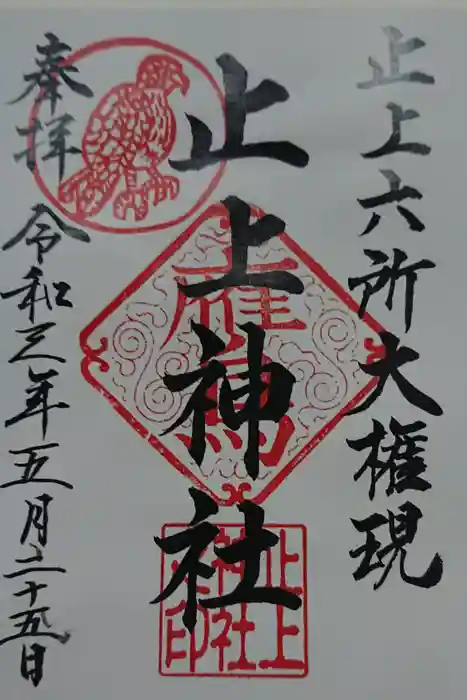 止上六所大権現
止上神社
奉拝
令和三年五月二十五日
止上
神社
之印